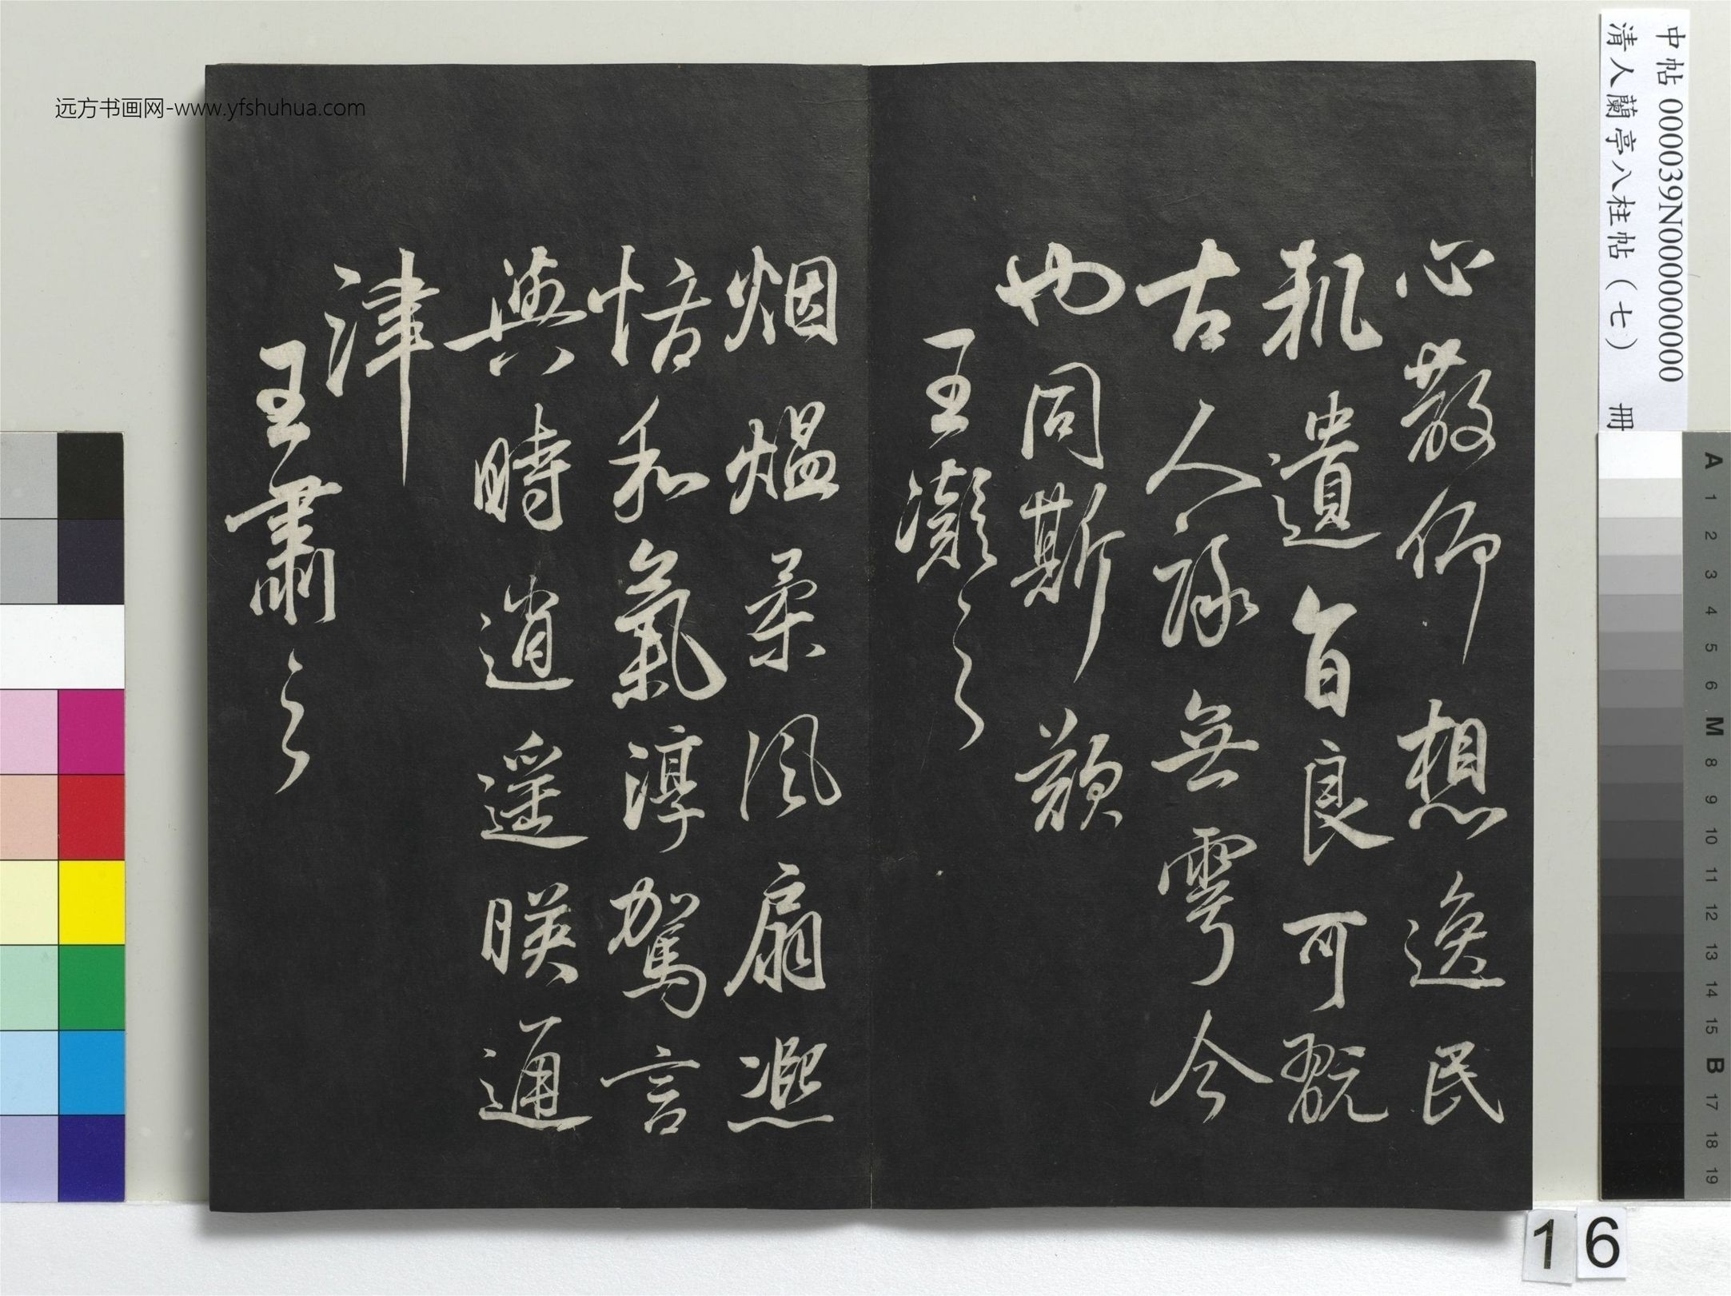 远方书画网-www.yfshuhua.com
中帖 000039N000000000
清人蘭亭八柱帖（七） 冊
心散仰想逸民
軌遺音良可翫
古人詠無雩今
也同斯歎
王凝之
烟煴柔风扇凞
恬和氣淳駕言
興時逍遥暎通
津
王肅之
A 1 2 3 4 5 6 M 8 9 10 11 12 13 14 15 B 17 18 19
16